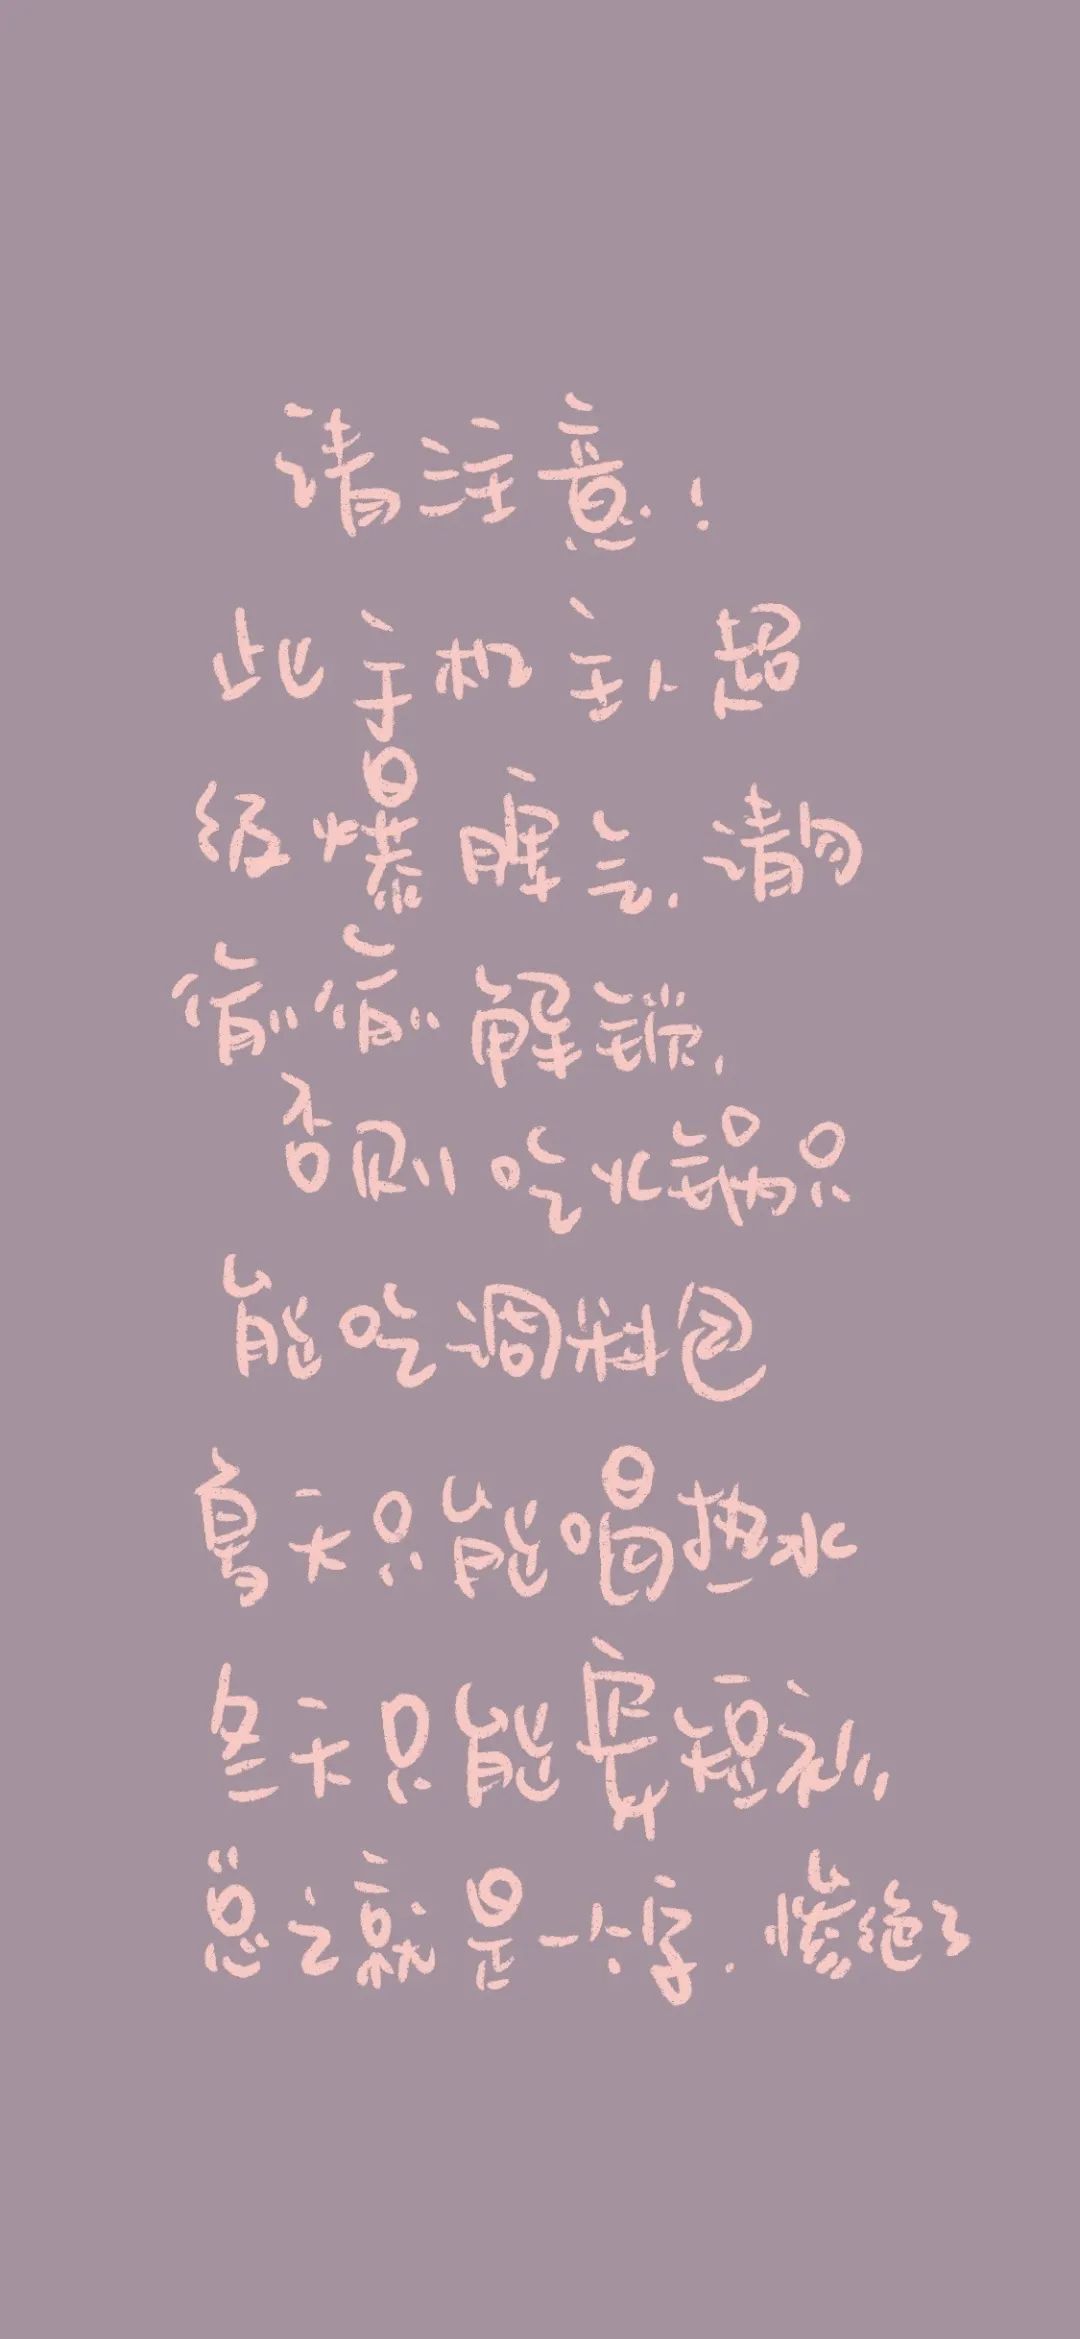 请注意！
此手机主人超
级爆脾气，请勿
偷偷解锁，
否则吃火锅只
能吃调料包
夏天只能喝热水
冬天只能穿短衫
总之就是一个字，惨绝了